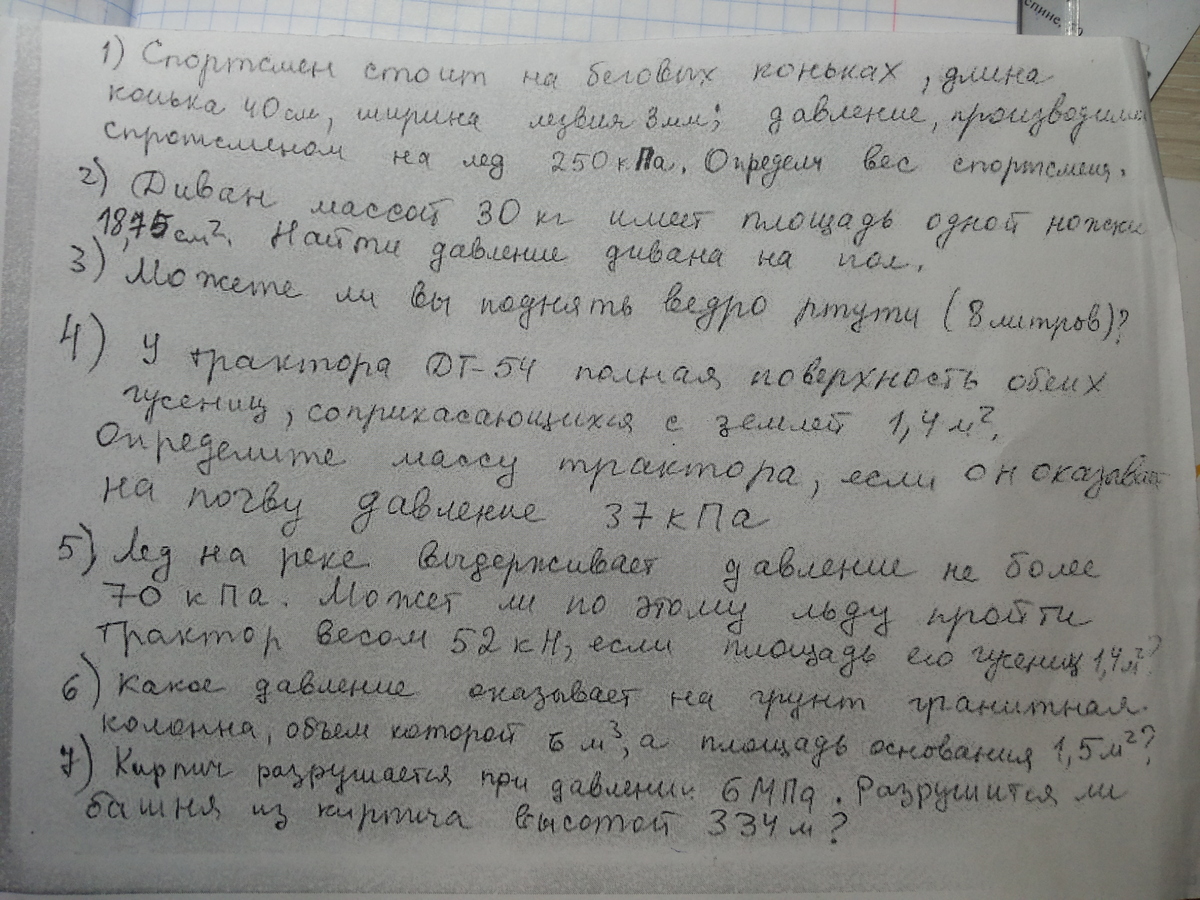 спине,
1) Спортсмен стоит на беговых коньках, длина
конька 40 см, ширина лезвия 3 мм; давление, производимое
спротсменом на лед 250 кПа. Определи вес спортсмена.
2) Диван массой 30 кг имеет площадь одной ножки
18,75 см². Найти давление дивана на пол.
3) Можете ли вы поднять ведро ртути (8 литров)?
4) У трактора ДТ-54 полная поверхность обеих
гусениц, соприкасающихся с землей 1,4 м².
Определите массу трактора, если он оказывает
на почву давление 37 кПа
5) Лед на реке выдерживает давление не более
70 кПа. Может ли по этому льду пройти
трактор весом 52 кН, если площадь его гусениц 1,4 м²?
6) Какое давление оказывает на грунт гранитная
колонна, объем которой 6 м³, а площадь основания 1,5 м²?
7) Кирпич разрушается при давлении 6 МПа. Разрушится ли
башня из кирпича высотой 334 м?